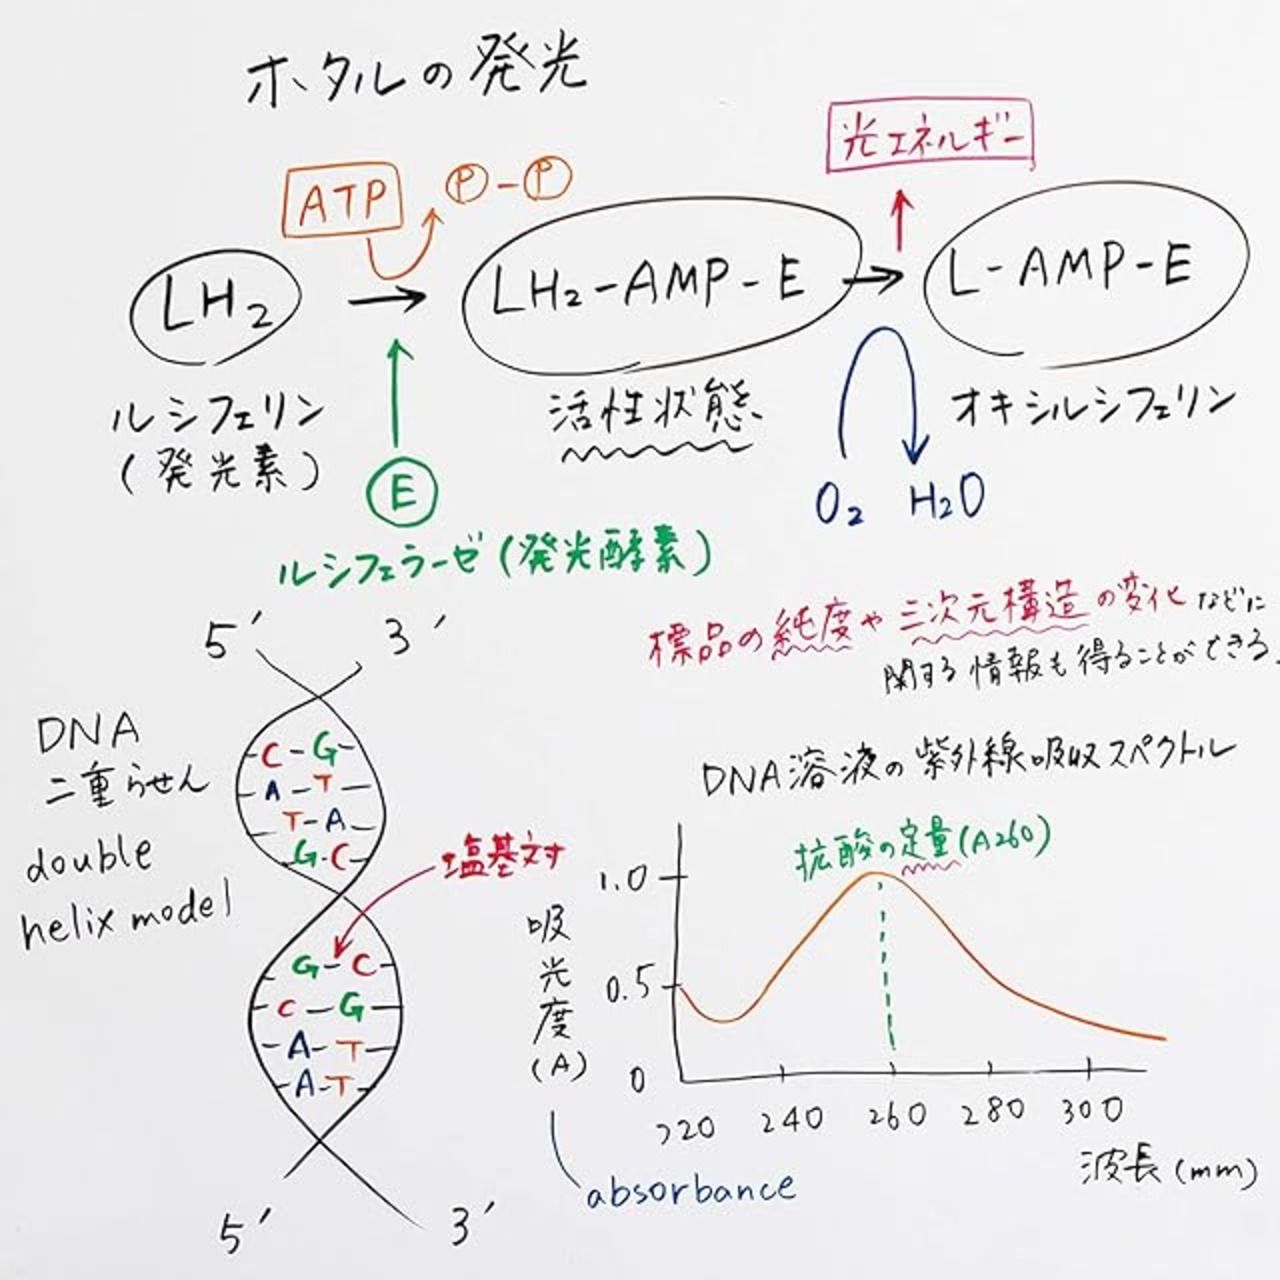 ホタルの発光
光エネルギー
ATP
Ⓟ-Ⓟ
LH₂
LH₂-AMP-E
L-AMP-E
ルシフェリン
(発光素)
活性状態
オキシルシフェリン
E
O₂ H₂O
ルシフェラーゼ(発光酵素)
標品の純度や三次元構造の変化などに
関する情報も得ることができる.
5′ 3′
DNA
二重らせん
double
helix model
C-G
A-T
T-A
G-C
塩基対
G-C
C-G
A-T
A-T
5′ 3′
DNA溶液の紫外線吸収スペクトル
抗酸の定量(A260)
1.0
0.5
0
吸光度(A)
220 240 260 280 300
波長(mm)
absorbance